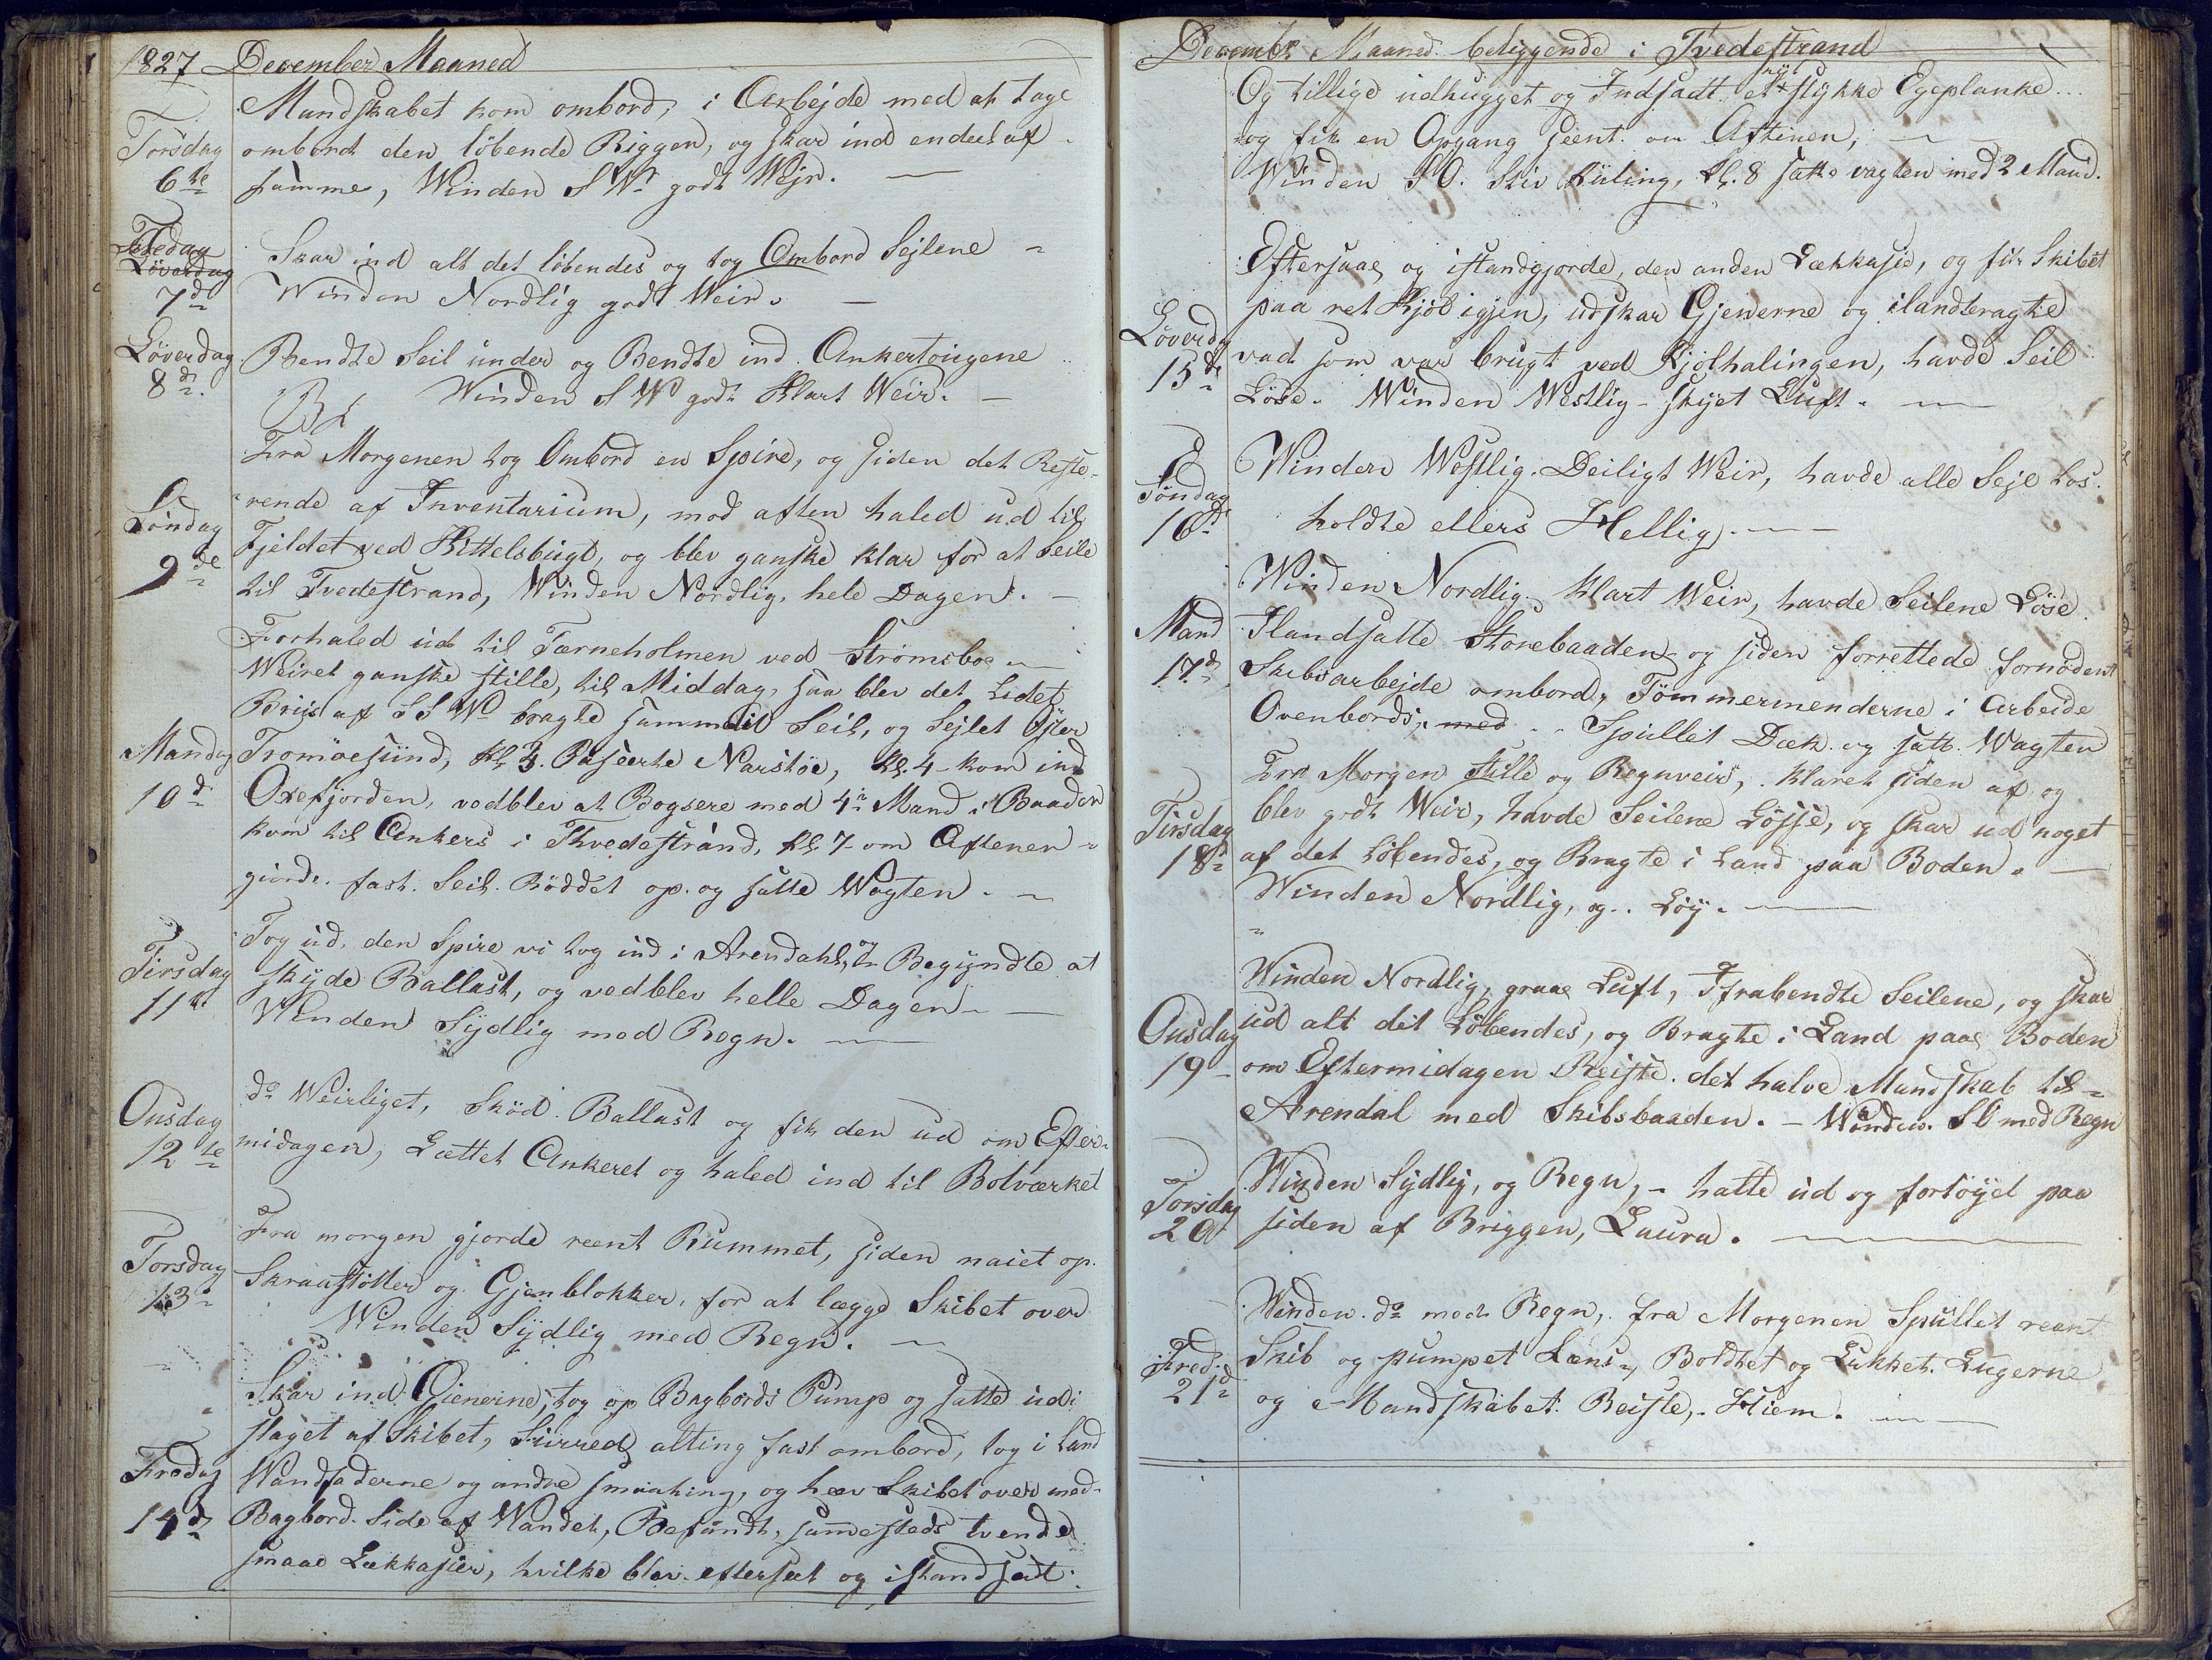 1827 December Maaned
Mandskabet kom ombord, i Arbejde med at tage
Torsdag ombord den löbende Riggen, og skar ind endeel af
6te samme, Winden S W godt Wejr. —
Fredag Skar ind alt det löbendes og tog Ombord Sejlene
Löverdag
7d Winden Nordlig godt Weir. —
Löverdag Bendte Seil under og Bendte ind Ankertougene
8d. Winden S W godt Klart Weir. —
Fra Morgenen tog Ombord en Spire, og siden det Reste-
rende af Inventarium, mod aften haled ud til
Söndag Fjeldet ved Kittelsbugt, og blev ganske klar for at Seile
9de til Tvedestrand, Winden Nordlig, hele Dagen. —
Forhaled ud til Tærneholmen ved Strömsboe —
Weiret ganske stille, til Middag, saa blev det Lidet
Briis af S S W bragte Seil, og Sejlet Öster
Mandag Tromöesund, Kl 3. Paseerte Narestöe, Kl. 4 kom ind
10d Oxefjorden, vedblev at Bogsere med 4 Mand i Baaden
kom til Ankers i Thvedestrand, Kl. 7 om Aftenen
giorde fast Seil. Röddet op og satte Wagten. —
Tog ud, den Spire vi tog ind i Arendahl, og Begyndte at
Tirsdag skyde Ballast, og vedblev helle Dagen —
11te Winden Sydlig med Regn. —
Onsdag do Weirliget, Sköd Ballast og fik den ud om Efter-
12te midagen, Lættet Ankeret og haled ind til Bolværket
Fra morgen gjorde reent Rummet, siden naiet op
Torsdag Skraastötter og Gjenblokker, for at lægge Skibet over
13 Winden Sydlig med Regn. —
Skar ind Gienerne, tog op Bagbords Pump og satte udi
slaget af Skibet, Surred alting fast ombord, tog i Land
Fredag Wandfaderne og andre smaating, og hæv Skibet over med
14d Bagbord Side af Wandet, Befandt, sammesteds tvende
smaae Lækkasier, hvilke blev efterseet og istandsat.
December Maaned beliggende i Tvedestrand
Og tillige udhugget og Indsadt et nyt stykke Egeplanke...
og fik en Opgang seent om Aftenen, —
Winden S O. Stiv Kuling, Kl. 8 satte vagten med 2 Mand.
Eftersaae og istandgjorde, den anden Lækkasie, og fik Skibet
Löverdg paa ret Kjöl igjen, udskar Gjenerne og ilandbragte
15d vad som var brugt ved Kjölhalingen, havde Seil
Löse. Winden Westlig - skyet Luft. —
Söndag Winden Westlig. Deiligt Weir, havde alle Seje Los.
16d holdte ellers Hellig. —
Winden Nordlig. Klart Weir, havde Seilene Löse
Mand Ilandsatte Storebaaden og siden forrettede fornödent
17d Skibsarbejde ombord, Tömmermenderne i Arbeide
Ovenbords, med Spullet Dæk og satt Wagten
Fra Morgen Stille og Regnveir, klaret siden af og
Tirsdag blev godt Weir, havde Seilene Lösse, og skar ud noget
18d af det Löbendes, og Bragte i Land paa Boden. —
Winden Nordlig, og Löy. —
Winden Nordlig, graae Luft, Ifrabendte Seilene, og skar
Onsdag ud alt det Löbendes, og Bragte i Land paae Boden
19 om Eftermidagen Reiste det halve Mandskab til
Arendal med Skibsbaaden. — Winden S O med Regn
Torsdag Winden Sydlig, og Regn, — halte ud og fortöyed paa
20 siden af Briggen, Laura. —
Winden do med Regn, fra Morgenen Spullet reent
Fred: Skib og pumpet Læns, Boldtet og Lukket Lugerne
21d og Mandskabet Reiste, Hiem. —